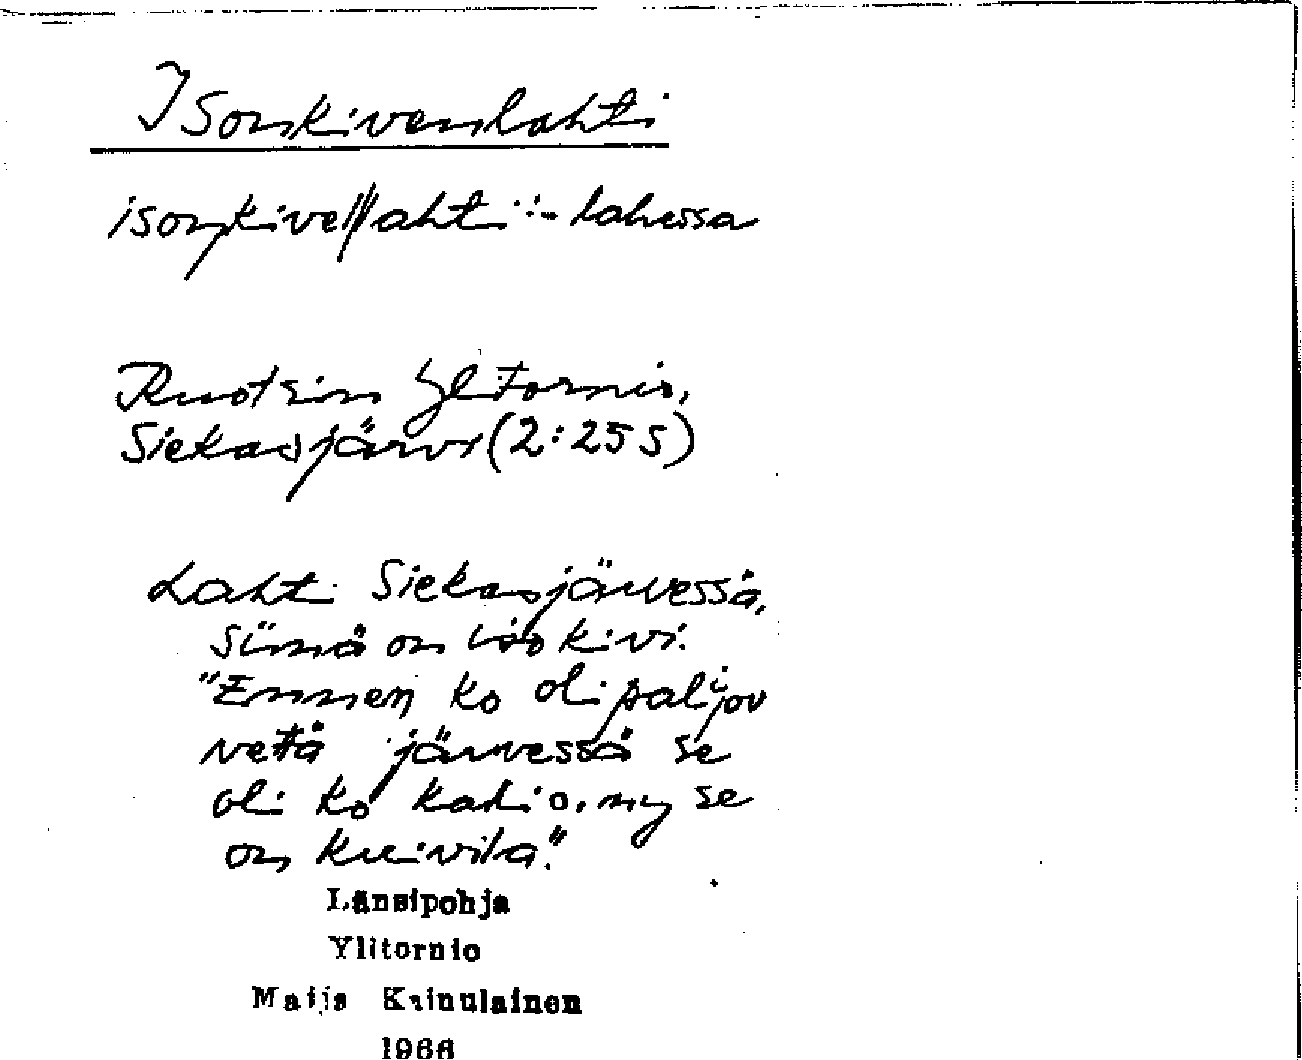 Isonkivenlahti
isoŋkivellahti :- lahessa
Ruotsin Ylitornio,
Siekasjärvi (2:255)
Lahti Siekasjärvessä,
siinä on iso kivi.
"Ennen ko oli paljov
vettä järvessä se
oli ko kario, ny se
on kuivila."
Länsipohja
Ylitornio
Maija Kainulainen
1966